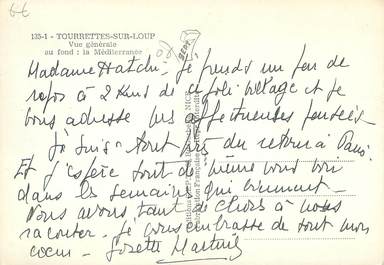 66
135-1 - TOURRETTES-SUR-LOUP
Vue générale
au fond : la Méditerranée
Madame Hatchi, je prends un peu de
repos à 2 Kms de ce joli village et je
vous adresse les affectueuses pensées
Je suis tout près du retour à Paris.
Et j'espère tout de même vous voir
dans les semaines qui viennent -
Nous avons tant de choses à nous
raconter - Je vous embrasse de tout mon
coeur - Josette